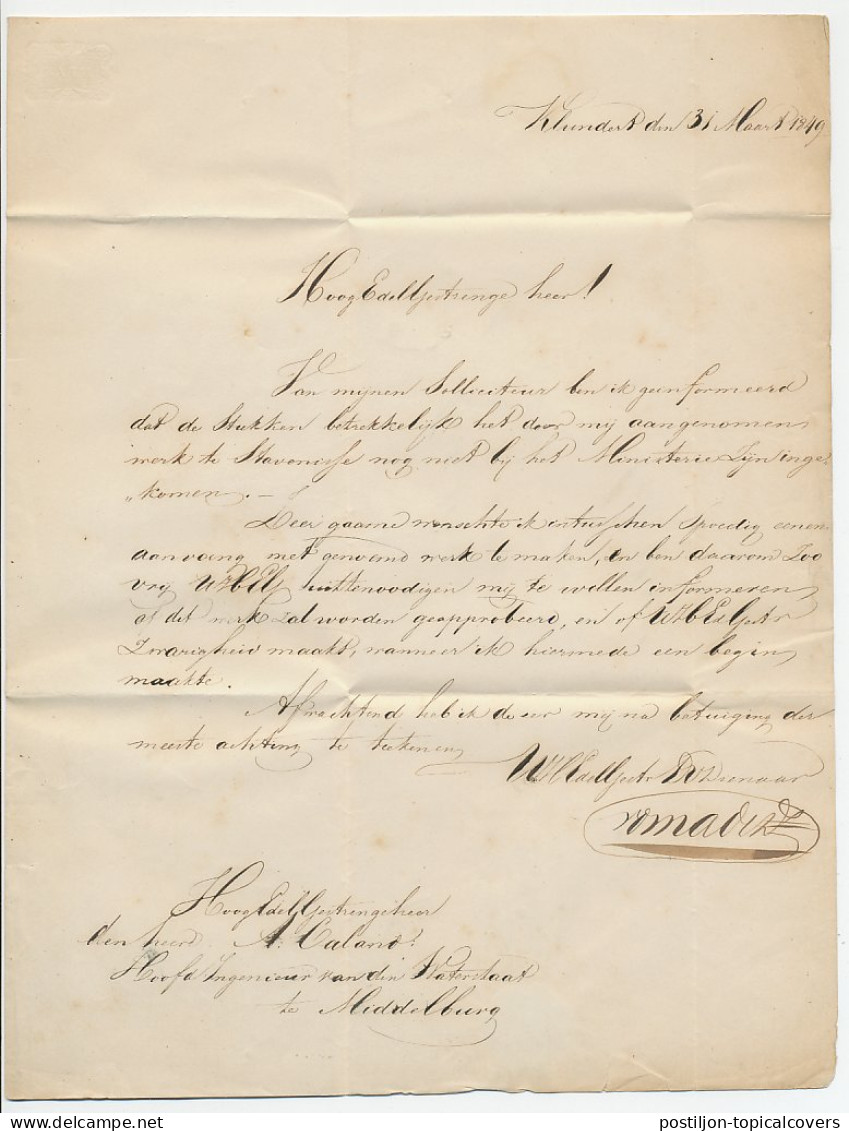 Klundert den 31 Maart 1849
HoogEdelGestrenge heer!
Van mijnen Solliciteur ben ik geinformeerd
dat de Stukken betrekkelijk het door mij aangenomen
werk te Stavenisse nog niet bij het Ministerie Zijn inge„
„komen. —
Zeer gaarne wenschte ik intusschen Spoedig eenen
aanvang met genoemd werk te maken, en ben daarom Zoo
vrij UHEG uittenoodigen mij te willen informeren,
of dit werk zal worden geapprobeerd, en of UHEdGestr
Zwarigheid maakt, wanneer ik hiermede een begin
maakte.
Afwachtend, heb ik de eer mij na betuiging der
meeste achting te teekenen
UHEdelGestr Dienaar
HoogEdelGestrenge heer
den heere A: Caland
Hoofd Ingenieur van den Waterstaat
te Middelburg
postiljon-topicalcovers
delcampe.net